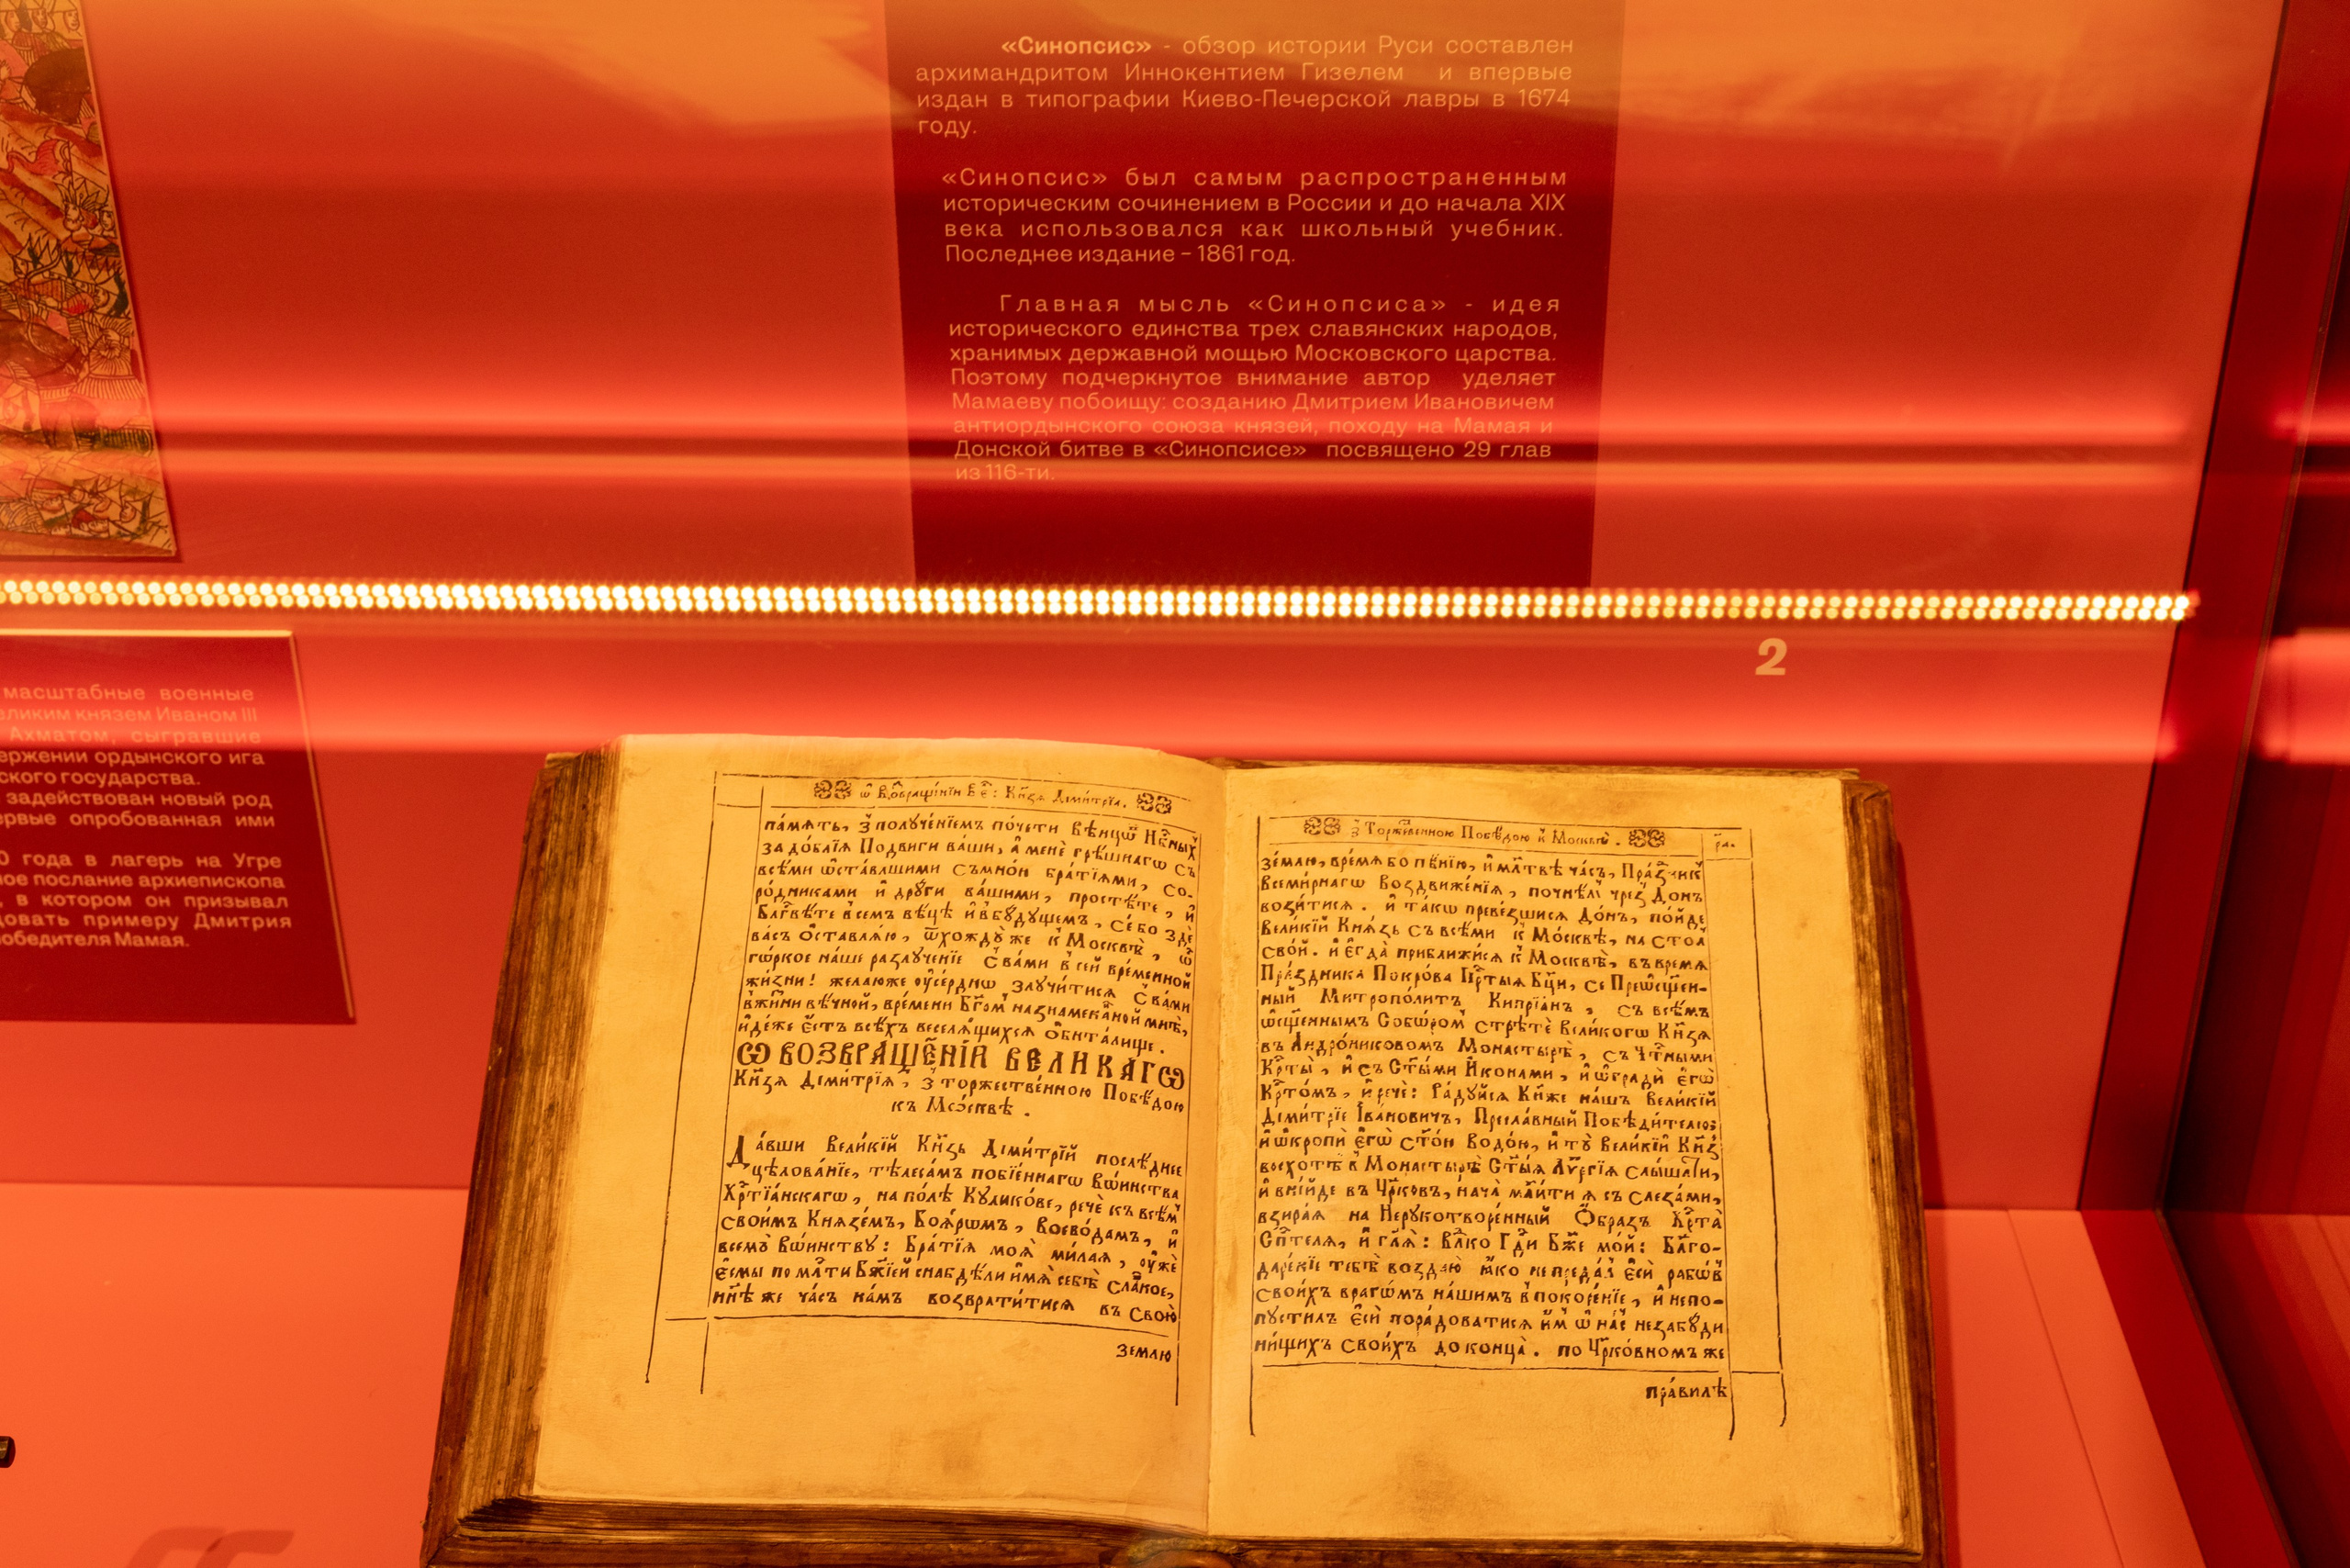 «Синопсис» - обзор истории Руси составлен
архимандритом Иннокентием Гизелем и впервые
издан в типографии Киево-Печерской лавры в 1674
году.
«Синопсис» был самым распространенным
историческим сочинением в России и до начала XIX
века использовался как школьный учебник.
Последнее издание – 1861 год.
Главная мысль «Синопсиса» - идея
исторического единства трех славянских народов,
хранимых державной мощью Московского царства.
Поэтому подчеркнутое внимание автор уделяет
Мамаеву побоищу: созданию Дмитрием Ивановичем
антиордынского союза князей, походу на Мамая и
Донской битве в «Синопсисе» посвящено 29 глав
из 116-ти.
2
масштабные военные
князем Иваном III
Ахматом, сыгравшие
ордынского ига
государства.
задействован новый род
опробованная ими
года в лагерь на Угре
послание архиепископа
, в котором он призывал
примеру Дмитрия
Мамая.
Кн҃зѧ Дими́трїа.
па́мѧть, з̾ получе́нїемъ по́чети вѣнцѡ̀в Нбⷭ҇ныхъ
за до́блїѧ Подвиги ва́ши, а҆ менѐ грѣ́шнагѡ съ
всѣ́ми ѡ҆ста́вшими съмно́ю бра́тїѧми, со-
ро́дниками и҆ дрꙋ́ги ва́шими, прости́те, и҆
ва́съ ѡ҆ставлѧ́ю, ѿхождꙋ́ же к̾ Москвѣ̀,
го́ркое на́ше разлꙋче́нїе с̾ ва́ми в̾ сей вре́менной
жи́зни! жела́юже ᲂу҆се́рднѡ злꙋчи́тисѧ с̾ ва́ми
и҆дѣ́же є҆́сть всѣ́хъ веселѧ́щихсѧ ѡ҆би́талище.
Ѡ ВОЗВРАЩЕ́НІИ ВЕЛИКАГѠ
Кн҃зѧ Дими́трїа, з̾ торже́ственною Побѣ́дою
къ Москвѣ̀.
Да́вши Вели́кїй Кн҃зь Дими́трїй послѣ́днее
цѣлова́нїе, тѣлеса́мъ побїе́ннагѡ во́инства
Хрⷭ҇тїа́нскагѡ, на по́лѣ Кꙋлико́ве, речѐ къ всѣ́м
свои́мъ Кнѧзе́мъ, Боѧ́рѡмъ, Воево́дамъ, и҆
всемꙋ̀ во́инствꙋ: Бра́тїѧ моѧ̀ ми́лаѧ, ᲂу҆жѐ
є҆смы̀ по млⷭ҇ти Бж҃їей снабдѣ́ли и҆́мѧ себѣ̀ сла́вное,
нн҃ѣ же ча́съ на́мъ возврати́тисѧ въ свою̀
землю
з̾ Торже́ственною Побѣ́дою к̾ Москвѣ̀.
зе́млю, вре́мѧ бо пѣ́нїю, и҆ мл҃твѣ ча́съ, Пра́здник
Всеми́рнагѡ Воздвиже́нїѧ, чрез̾ Донъ
вози́тисѧ. и҆ та́кѡ преве́зшисѧ До́нъ, по́йде
Вели́кїй Кнѧ́зь съ всѣ́ми к̾ Мо́сквѣ, на сто́л
сво́й. и҆ є҆гда̀ прибли́жисѧ к̾ Москвѣ̀, въ вре́мѧ
Пра́здника Покро́ва Прⷭ҇тыѧ Бц҃ы, се Преѡсщ҃е́н-
ный Митрополи́тъ Кипрїа́нъ, съ всѣ́мъ
ѡ҆сщ҃е́ннымъ Собо́ром стрѣ́те Вели́кагѡ Кн҃зѧ
въ Андро́никовомъ Монастырѣ̀, съ Чтⷭ҇ны́ми
Крⷭ҇ты̀, и҆ съ Ст҃ы́ми И҆ко́нами, и҆ ѡ҆градѝ є҆гѡ̀
Крⷭ҇то́мъ, и҆ речѐ: Ра́дꙋйсѧ Кн҃же на́шъ Вели́кїй
Дими́трїе І҆ва́новичъ, Пресла́вный Побѣди́телю:
и҆ ѡ҆кропѝ є҆гѡ̀ ст҃о́ю водо́ю, и҆ тꙋ̀ Вели́кїй Кн҃зь
восхотѣ̀ в̾ Монастырѣ̀ Ст҃ы́ѧ Лїтꙋргі́ѧ слы́шати,
и҆ вни́йде въ Цр҃ковь, нача̀ мл҃и́тисѧ съ слеза́ми,
взира́ѧ на Нерꙋкотворе́нный Ѡ҆́бразъ Хрⷭ҇та̀
Сп҃си́телѧ, и҆ гл҃ѧ: Влⷣко Гдⷭ҇и Бж҃е мо́й: Бл҃го-
даре́нїе тебѣ̀ возда́ю ꙗ҆́ко не преда́л є҆сѝ рабѡ́в
свои́хъ врагѡ́мъ на́шимъ в̾ поко́ренїе, и҆ непо-
пꙋсти́лъ є҆сѝ пора́доватисѧ и҆̀м ѡ҆ на́с незабꙋ́ди
ни́щихъ свои́хъ до конца̀. по Цр҃ко́вномъ же
пра́вилѣ